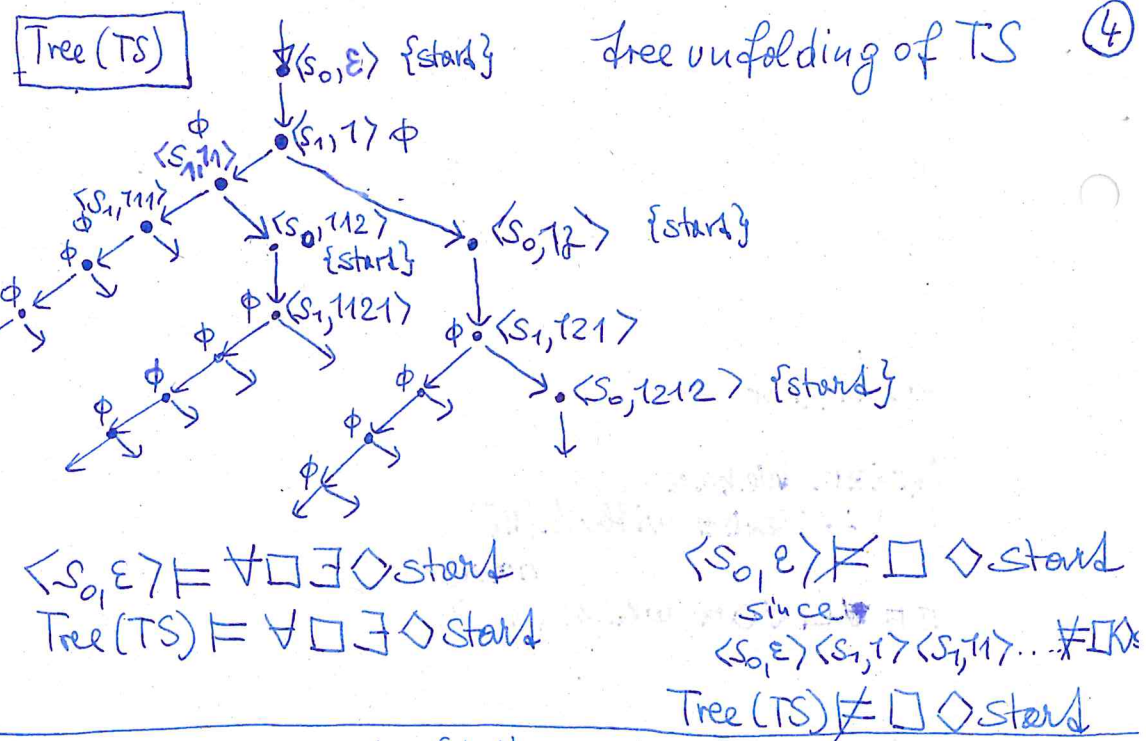 Tree (TS)
tree unfolding of TS
④
⟨s₀, ε⟩ {start}
⟨s₁, 1⟩ ϕ
ϕ
⟨s₁, 11⟩
⟨s₁, 111⟩
ϕ
⟨s₀, 112⟩
{start}
⟨s₀, 12⟩ {start}
ϕ
ϕ
ϕ ⟨s₁, 1121⟩
ϕ ⟨s₁, 121⟩
ϕ
ϕ
ϕ
ϕ
⟨s₀, 1212⟩ {start}
ϕ
ϕ
⟨s₀, ε⟩ ⊨ ∀□∃◇start
Tree (TS) ⊨ ∀□∃◇start
⟨s₀, ε⟩ ⊭ □ ◇start
since
⟨s₀, ε⟩⟨s₁, 1⟩⟨s₁, 11⟩... ⊭ □◇s
Tree (TS) ⊭ □ ◇start